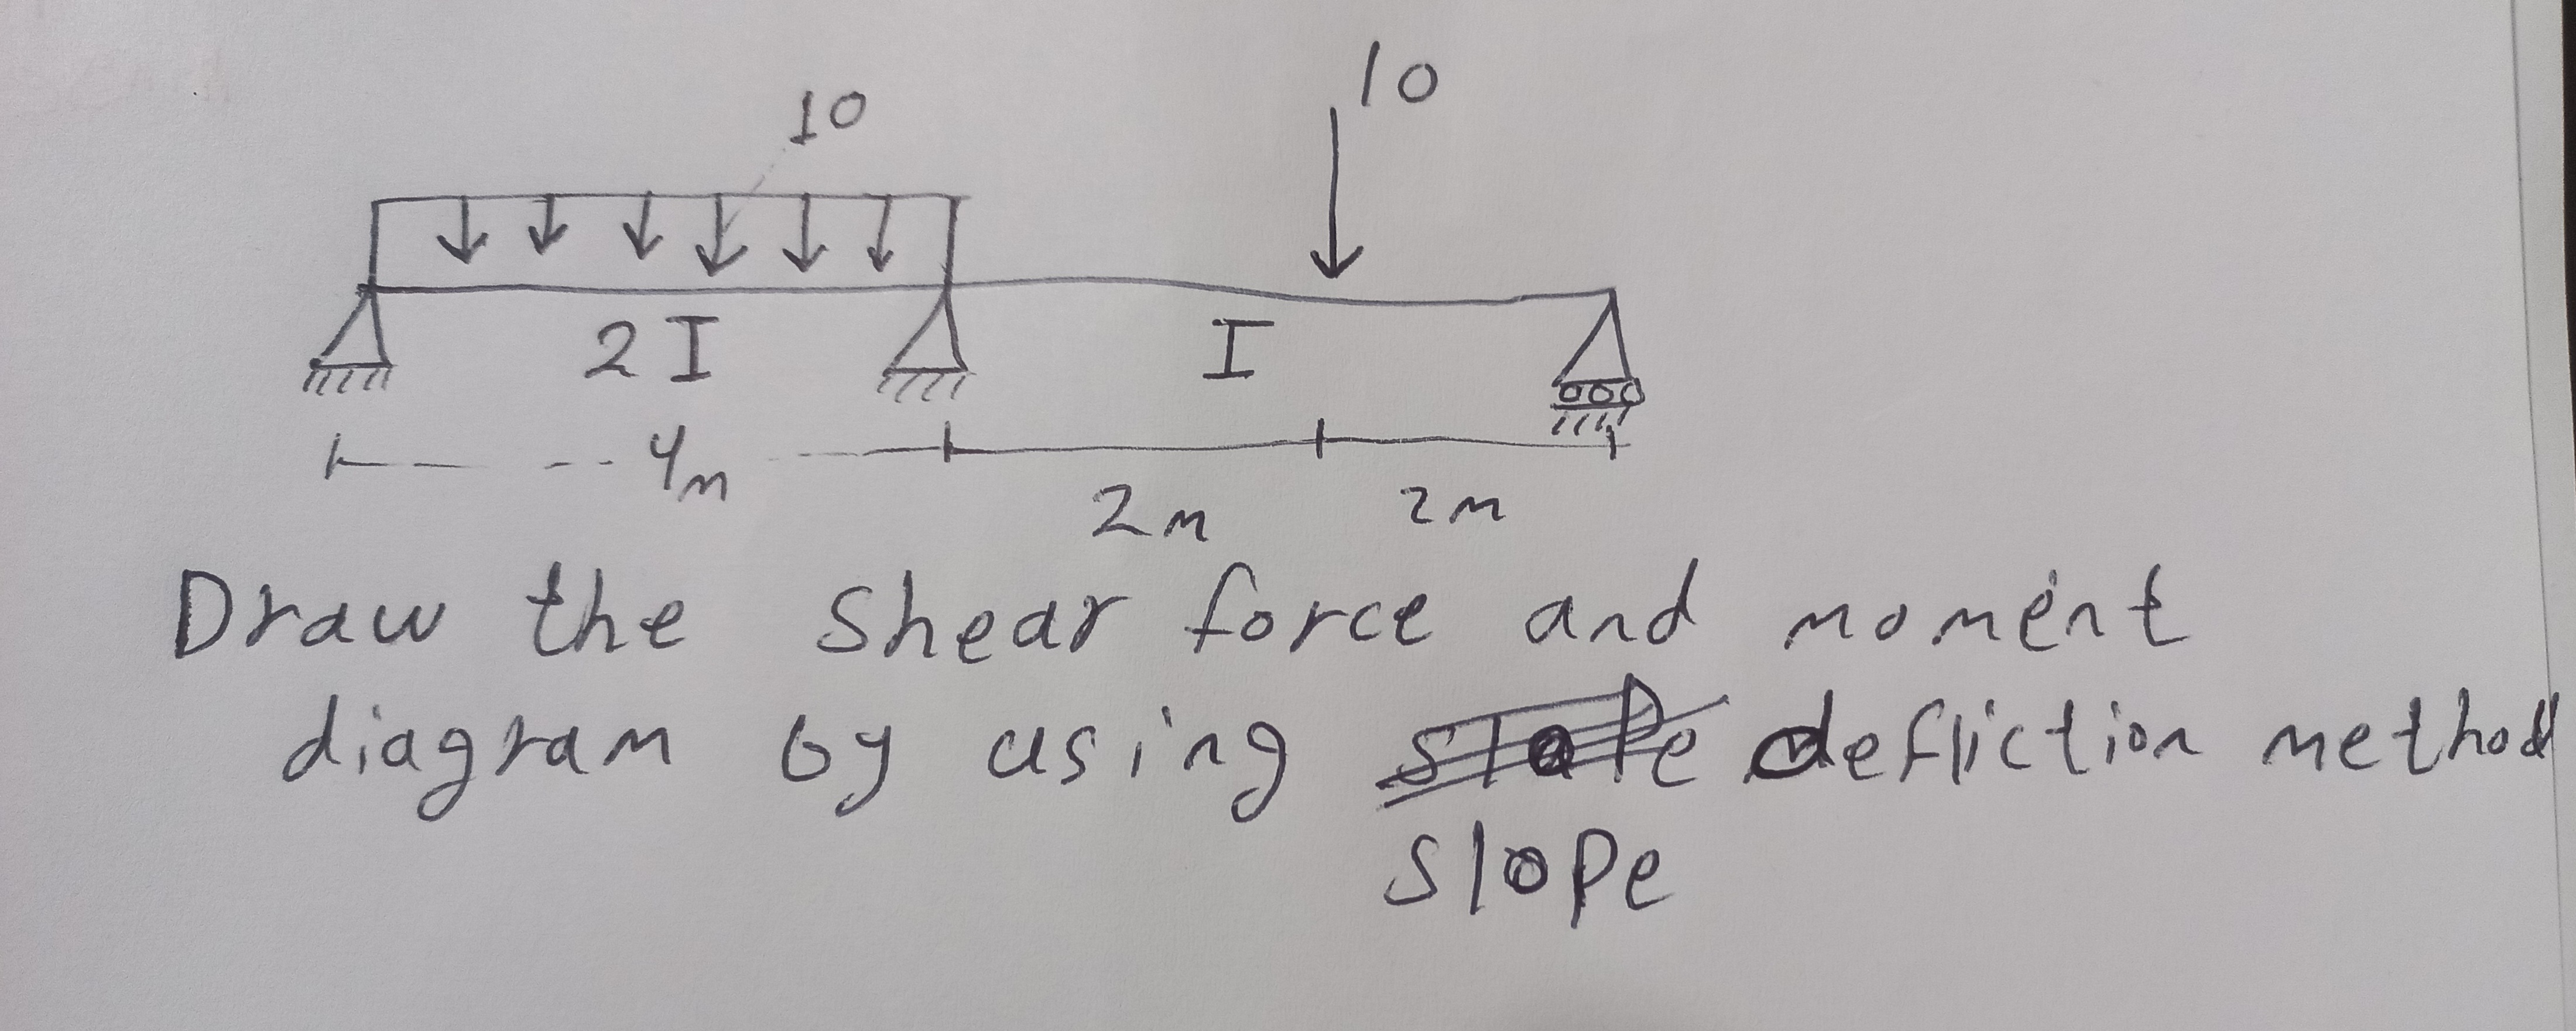 10
10
2I
I
4m
2m
2m
Draw the shear force and moment
diagram by using slope defliction method
slope